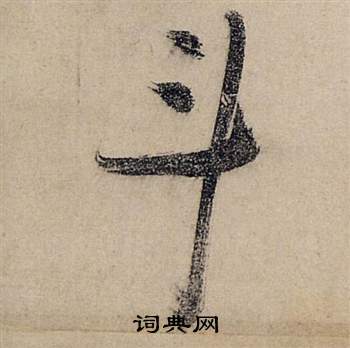 斗
词典网